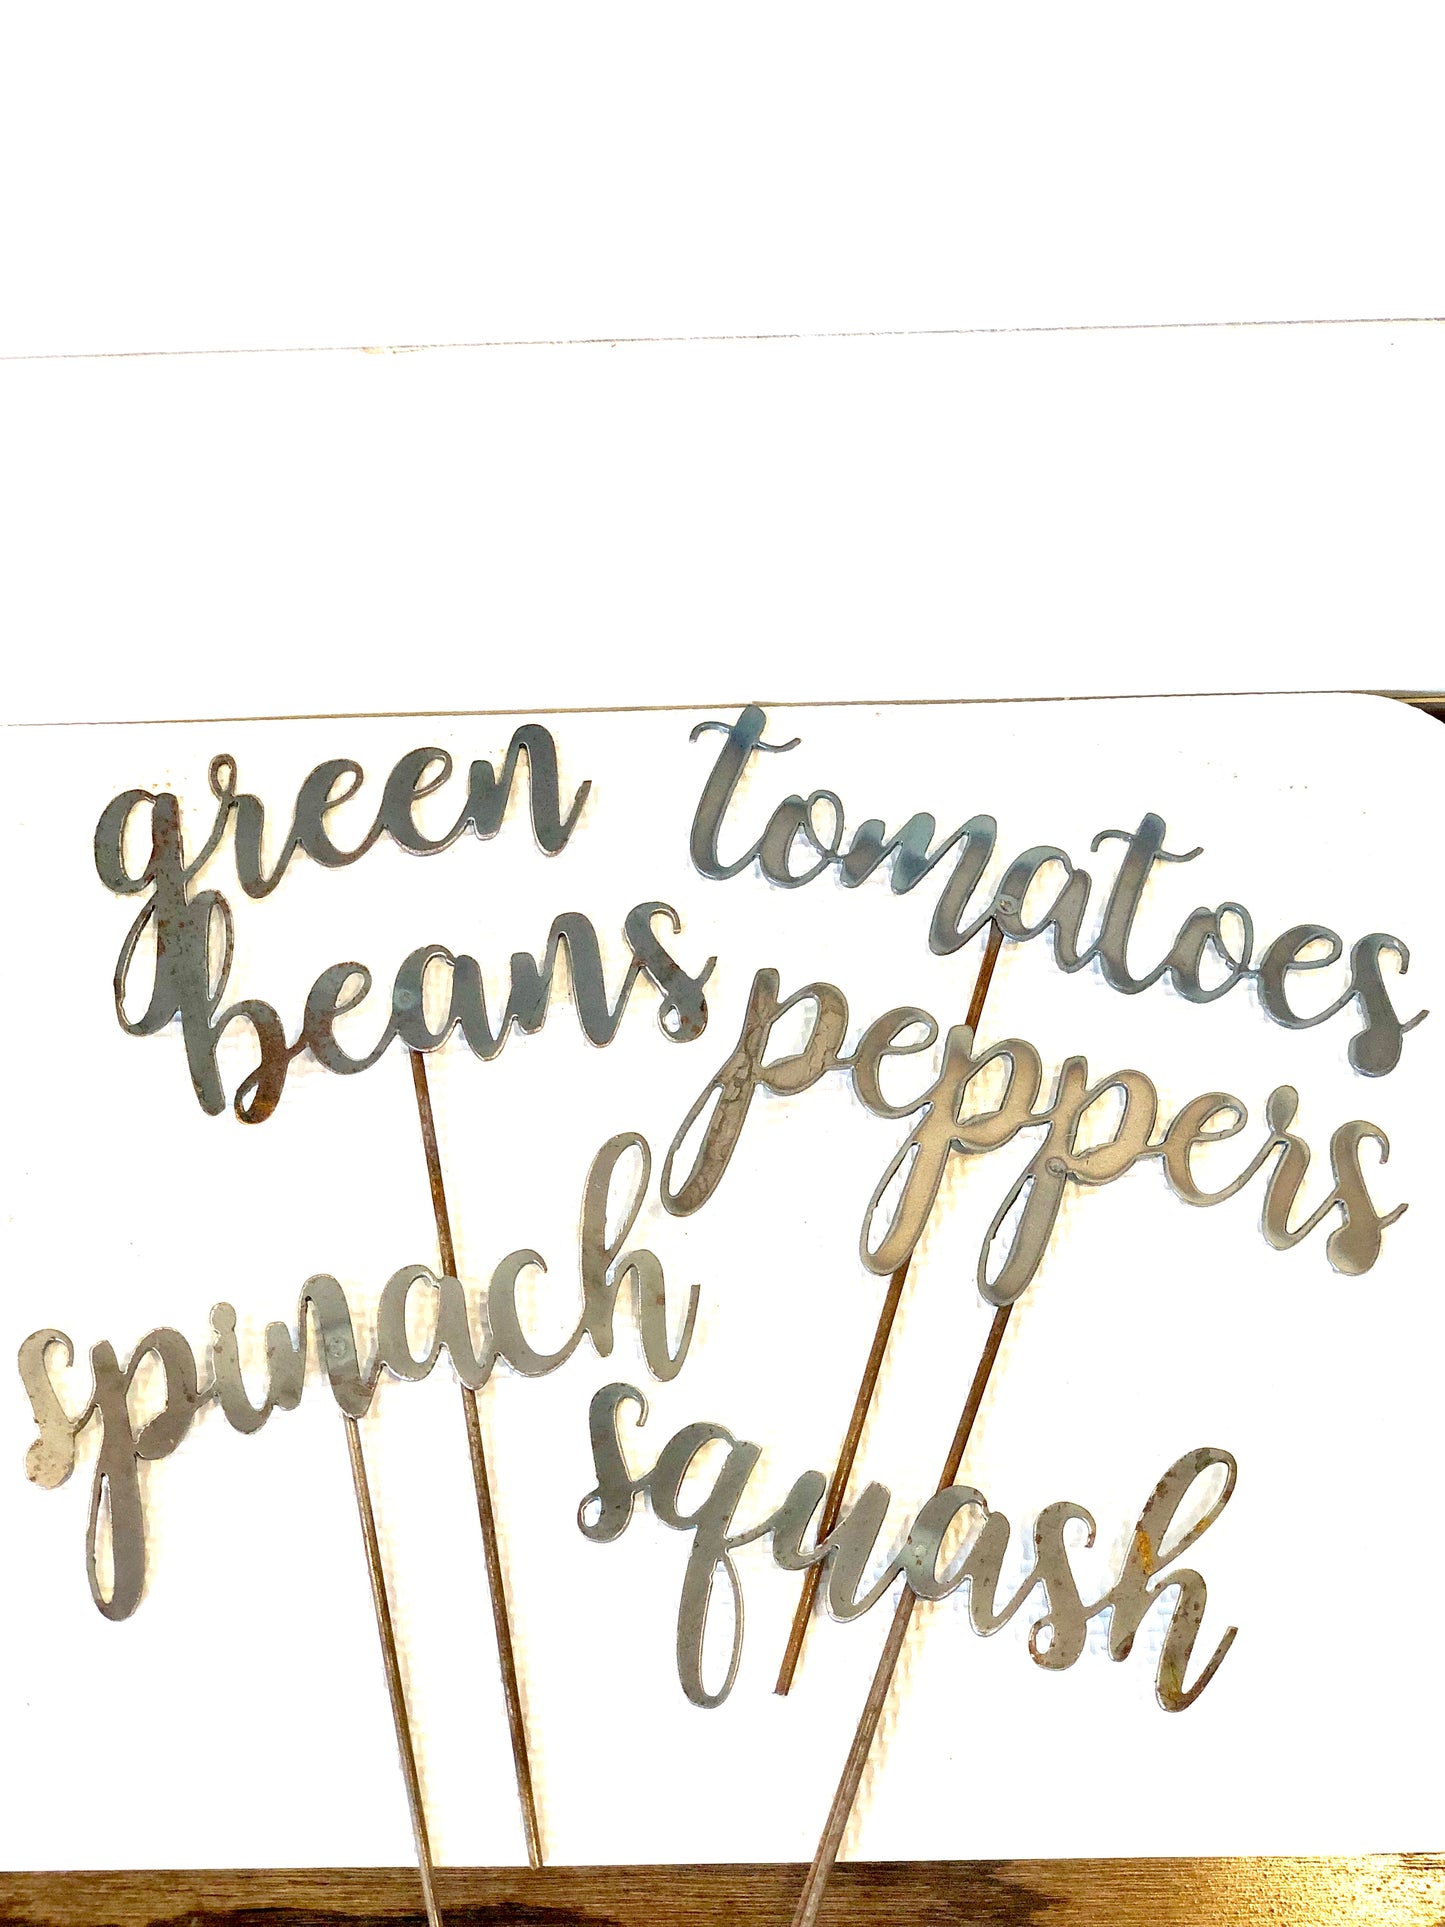 green
beans
tomatoes
peppers
spinach
squash